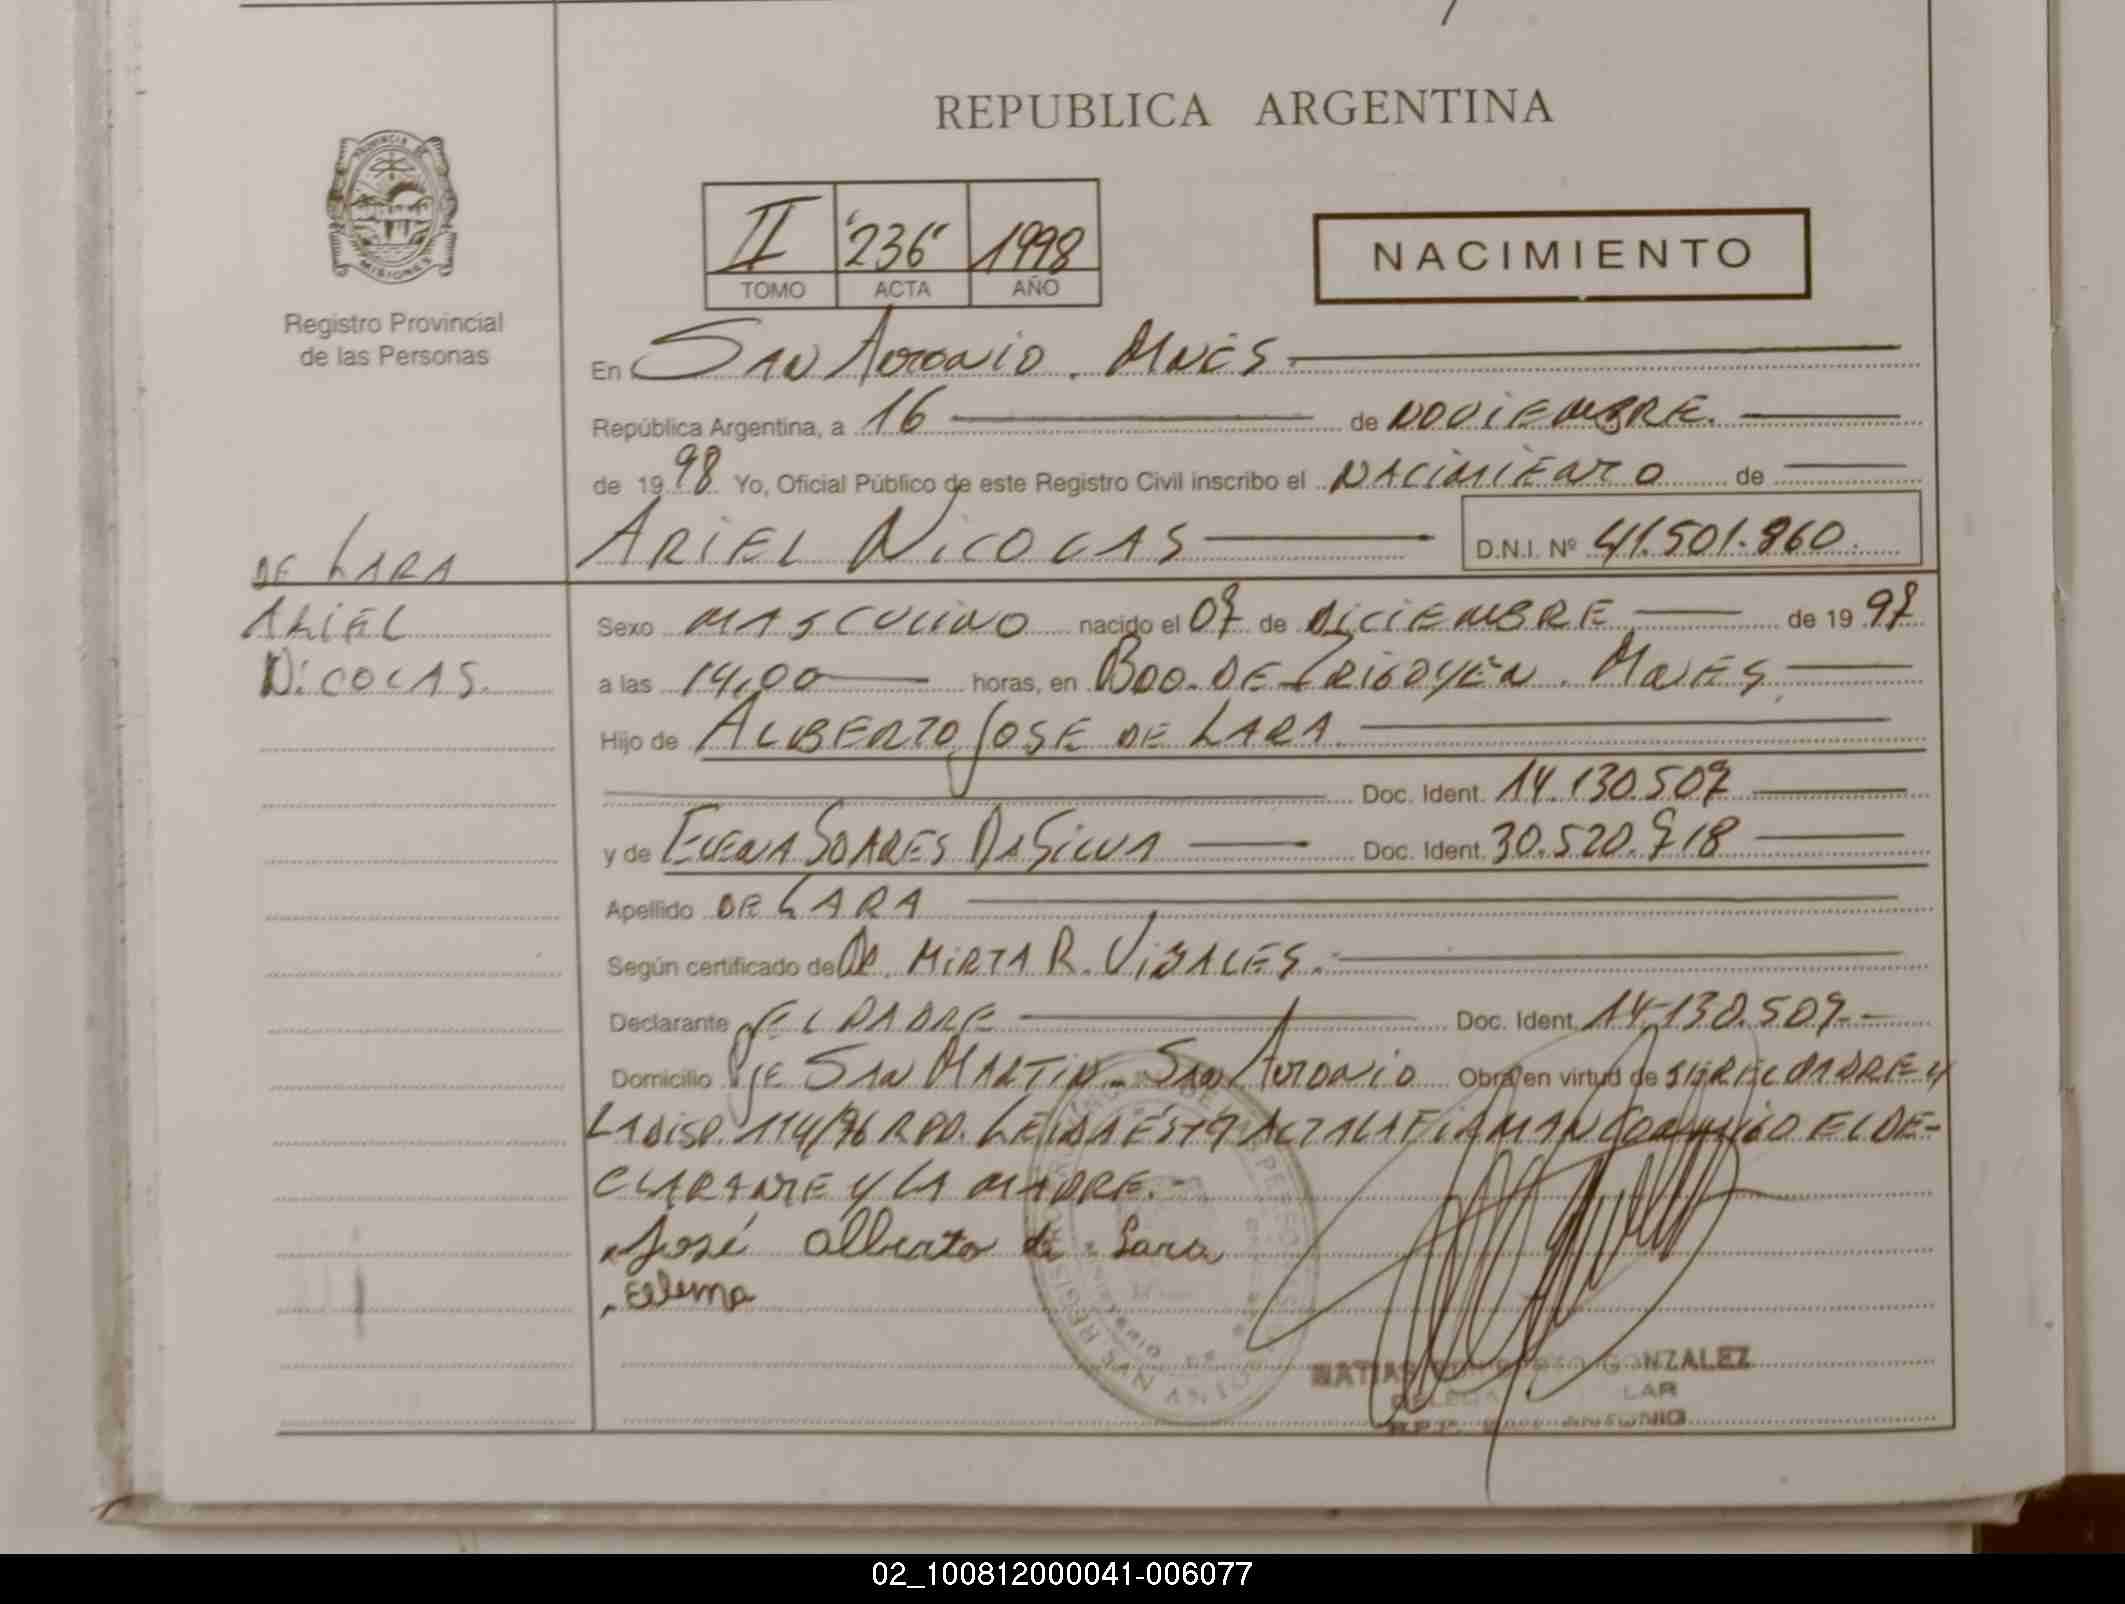 REPUBLICA ARGENTINA
PROVINCIA DE
MISIONES
Registro Provincial
de las Personas
II "236" 1998
TOMO ACTA AÑO
NACIMIENTO
En SAN ANTONIO. MNES
República Argentina, a 16 de NOVIEMBRE.
de 1998 Yo, Oficial Público de este Registro Civil inscribo el NACIMIENTO de
ARIEL NICOLAS D.N.I. Nº 41.501.860.
DE LARA
ARIEL
NICOLAS.
Sexo MASCULINO nacido el 07 de DICIEMBRE de 1997
a las 14,00 horas, en BDO. DE IRIGOYEN. MNES
Hijo de ALBERTO JOSE DE LARA.
Doc. Ident. 14.130.507
y de ELENA SOARES DA SILVA Doc. Ident. 30.520.718
Apellido DE LARA
Según certificado de MIRTA R.
Declarante EL PADRE Doc. Ident. 14-130.507.-
Domicilio PJE SAN MARTIN - SAN ANTONIO Obra en virtud de SER EL PADRE Y
LA DISP. 114/96 RPP. LEIDA ESTA ACTA LA FIRMAN CONMIGO EL DE-
CLARANTE Y LA MADRE.-
José Alberto de Lara
Elema
GONZALEZ
R.P.P. SAN ANTONIO
02_100812000041-006077